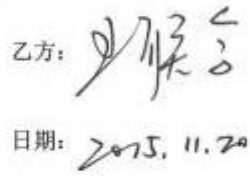 乙方：
日期：2015.11.20